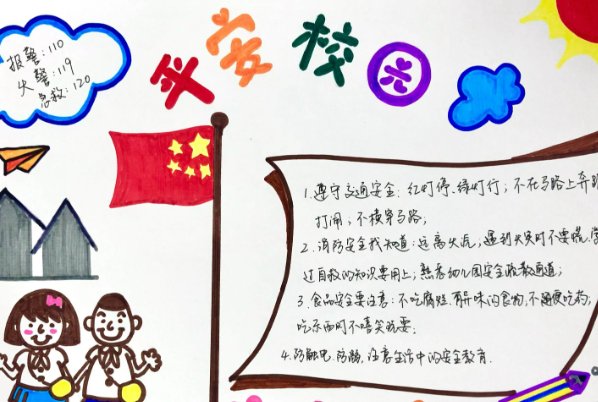 报警:110
火警:119
急救:120
平安校园
1.遵守交通安全:红灯停、绿灯行;不在马路上奔跑
打闹,不横穿马路;
2.消防安全我知道:远离火源,遇到火灾时不要慌,学
过自救的知识要用上;熟悉幼儿园安全疏散通道;
3.食品安全要注意:不吃腐烂、有异味的食物,不随便吃药,
吃东西时不嘻笑玩耍.
4.防触电、防溺,注意生活中的安全教育.